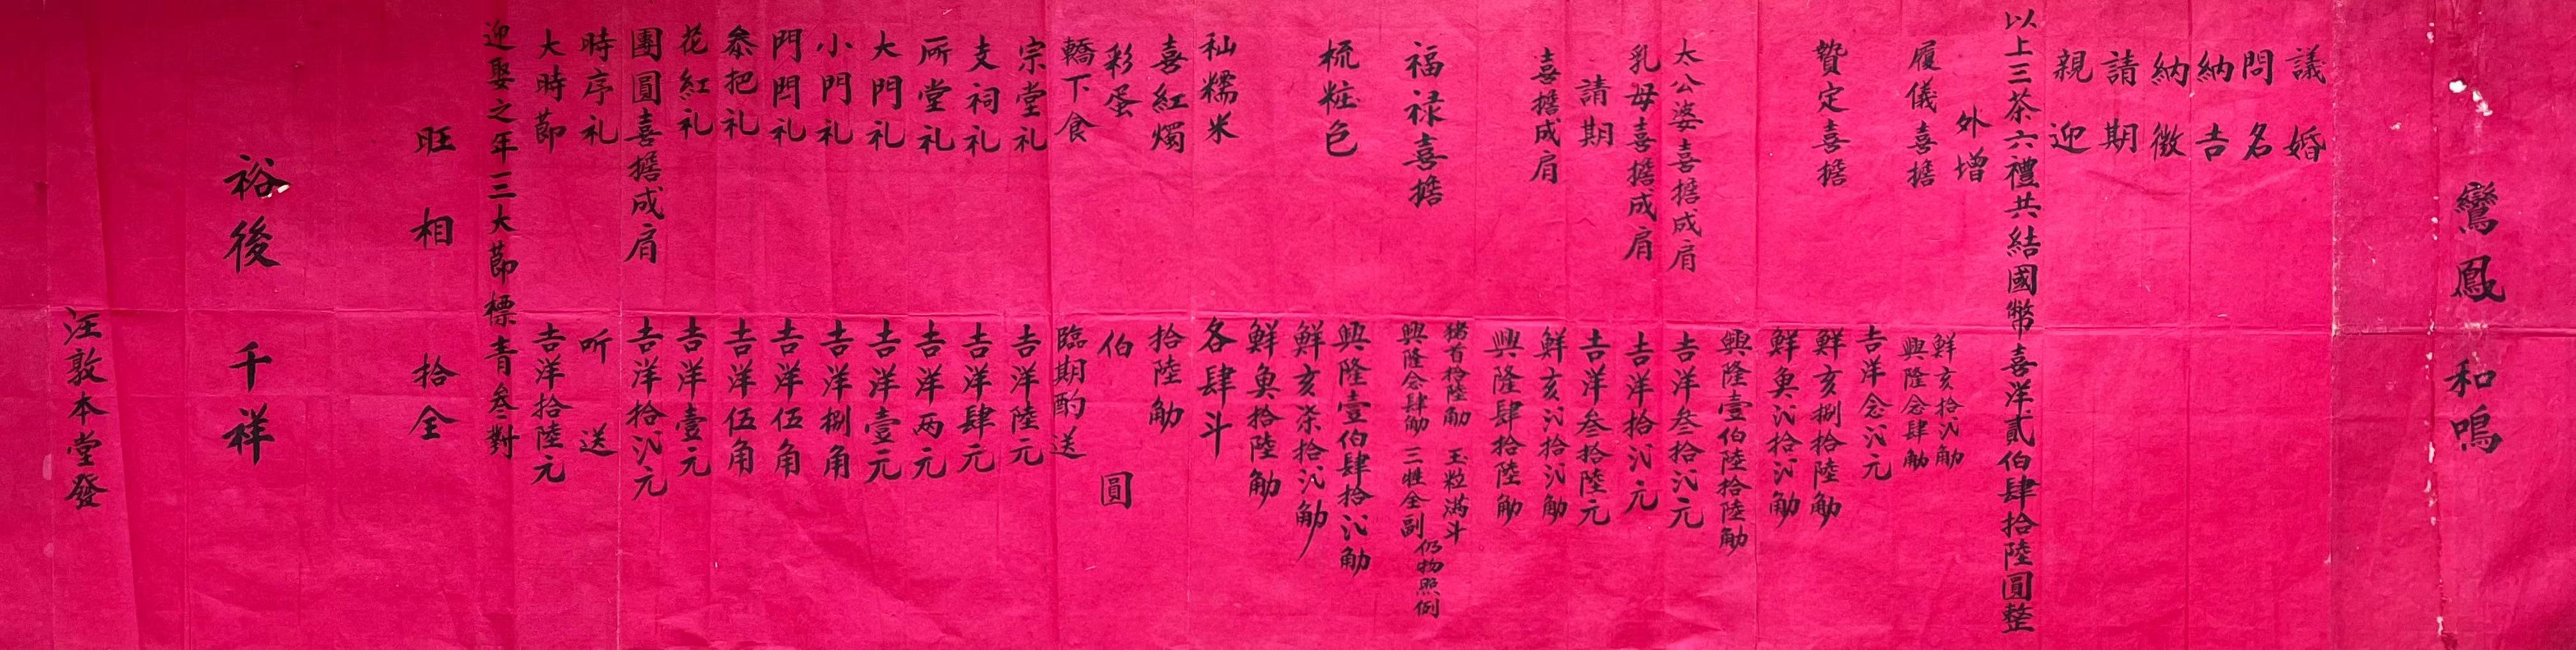 鸞鳳和鳴
議婚
問名
納吉
納徵
請期
親迎
以上三茶六禮共結國幣喜洋貳伯肆拾陸圓整
外增
履儀喜擔
鮮亥拾汃觔
興隆念肆觔
贄定喜擔
吉洋念汃元
鮮亥捌拾陸觔
鮮魚汃拾汃觔
興隆壹伯陸拾陸觔
太公婆喜擔成肩 吉洋叁拾汃元
乳母喜擔成肩 吉洋拾汃元
請期 吉洋叁拾陸元
喜擔成肩 鮮亥汃拾汃觔
興隆肆拾陸觔
福禄喜擔
猪首拾陸觔 玉粒滿斗
興隆念肆觔 三牲全副
仍物照例
梳粧色 興隆壹伯肆拾汃觔
鮮亥柒拾汃觔
鮮魚拾陸觔
秈糯米 各肆斗
喜紅燭 拾陸觔
彩蛋 伯圓
轎下食 臨期酌送
宗堂礼 吉洋陸元
支祠礼 吉洋肆元
所堂礼 吉洋兩元
大門礼 吉洋壹元
小門礼 吉洋捌角
門閂礼 吉洋伍角
叅把礼 吉洋伍角
花紅礼 吉洋壹元
團圓喜擔成肩 吉洋拾汃元
時序礼 听送
大時節 吉洋拾陸元
迎娶之年三大節標青叁對
旺相 拾全
裕後千祥
汪敦本堂發